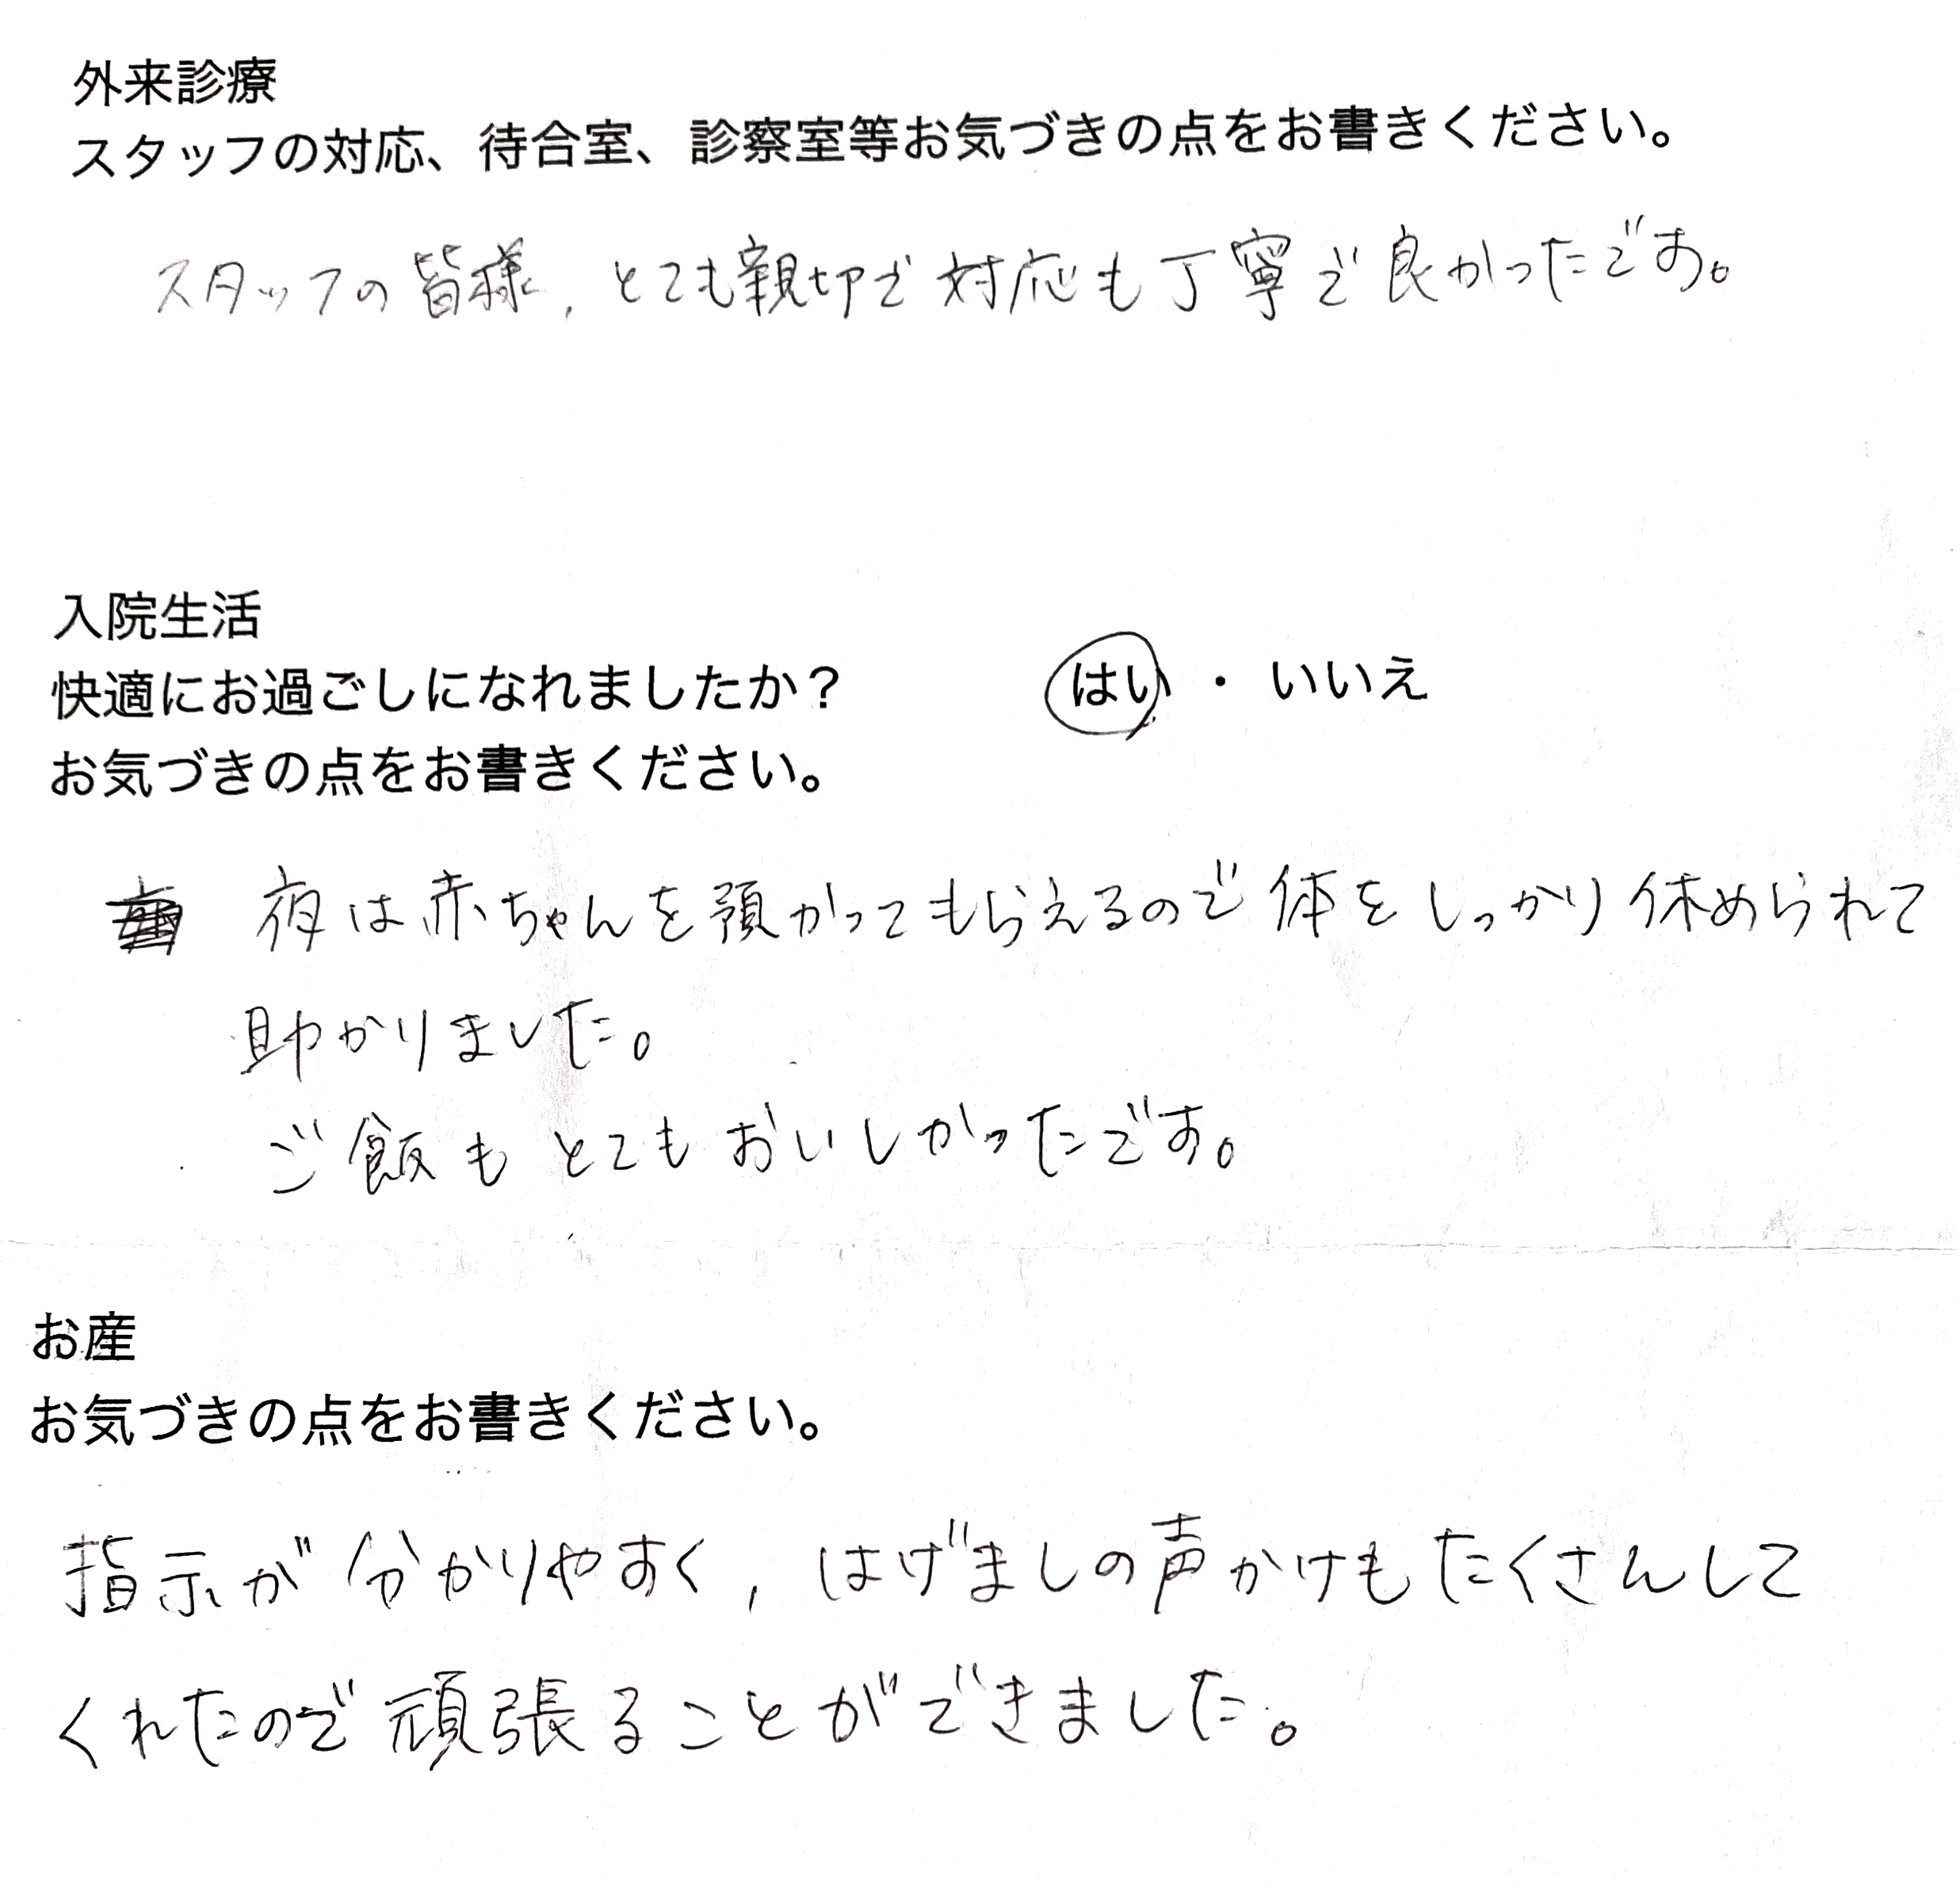 外来診療
スタッフの対応、待合室、診察室等お気づきの点をお書きください。
スタッフの皆様，とても親切で対応も丁寧で良かったです。
入院生活
快適にお過ごしになれましたか？ はい・いいえ
お気づきの点をお書きください。
夜は赤ちゃんを預かってもらえるので体をしっかり休められて
助かりました。
ご飯もとてもおいしかったです。
お産
お気づきの点をお書きください。
指示が分かりやすく，はげましの声かけもたくさんして
くれたので頑張ることができました。